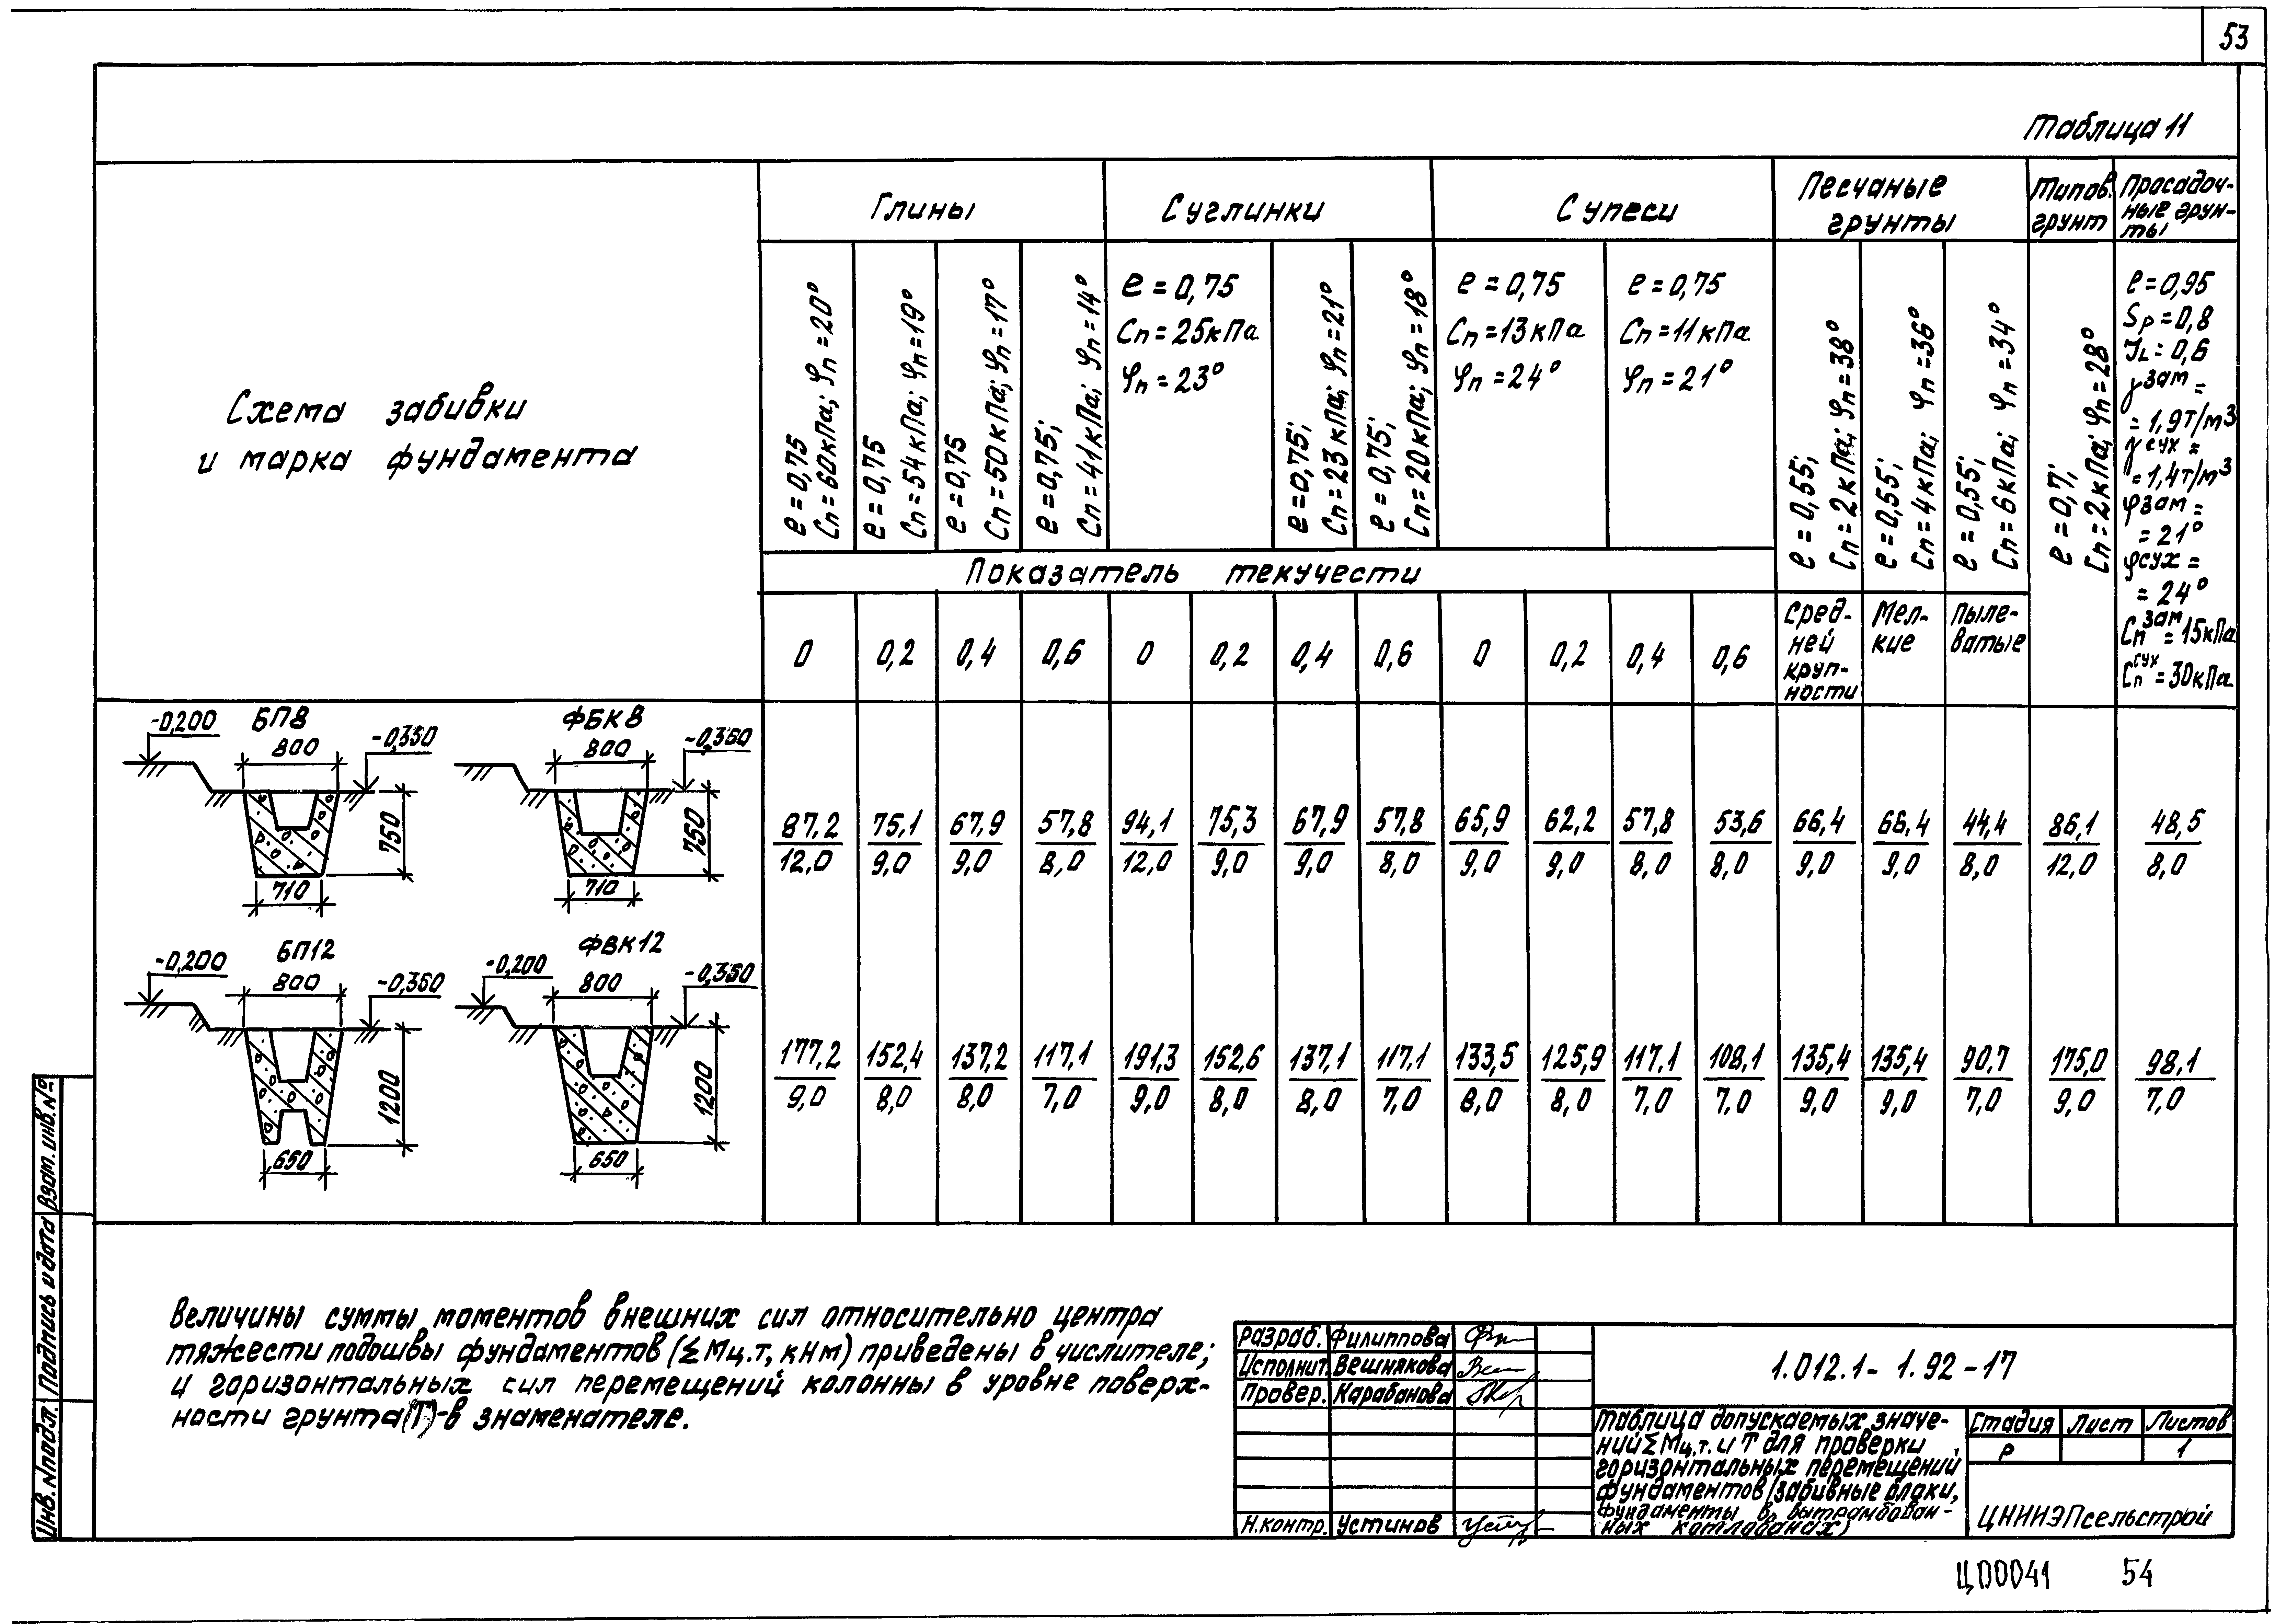 53
Таблица 11
Схема забивки
и марка фундамента
Глины
Суглинки
Супеси
Песчаные
грунты
Типов.
грунт
Просадоч-
ные грун-
ты
e = 0,75
Cп = 60кПа; φп = 20°
e = 0,75
Cп = 54кПа; φп = 19°
e = 0,75
Cп = 50кПа; φп = 17°
e = 0,75;
Cп = 41кПа; φп = 14°
e = 0,75
Cп = 25кПа
φп = 23°
e = 0,75;
Cп = 23кПа; φп = 21°
e = 0,75;
Cп = 20кПа; φп = 18°
e = 0,75
Cп = 13кПа
φп = 24°
e = 0,75
Cп = 11кПа
φп = 21°
e = 0,55;
Cп = 2кПа; φп = 38°
e = 0,55;
Cп = 4кПа; φп = 36°
e = 0,55;
Cп = 6кПа; φп = 34°
e = 0,7;
Cп = 2кПа; φп = 28°
e = 0,95
Sр = 0,8
JL = 0,6
γзам =
= 1,9т/м³
γсух =
= 1,4т/м³
φзам =
= 21°
φсух =
= 24°
Cпзам = 15кПа
Cпсух = 30кПа
Показатель текучести
0 0,2 0,4 0,6 0 0,2 0,4 0,6 0 0,2 0,4 0,6
Сред-
ней
круп-
ности
Мел-
кие
Пыле-
ватые
-0,200 БП8 -0,350
800
750
710
ФБК8 -0,350
800
750
710
87,2 75,1 67,9 57,8 94,1 75,3 67,9 57,8 65,9 62,2 57,8 53,6 66,4 66,4 44,4 86,1 48,5
12,0 9,0 9,0 8,0 12,0 9,0 9,0 8,0 9,0 9,0 8,0 8,0 9,0 9,0 8,0 12,0 8,0
-0,200 БП12 -0,350
800
1200
650
-0,200 ФВК12 -0,350
800
1200
650
177,2 152,4 137,2 117,1 191,3 152,6 137,1 117,1 133,5 125,9 117,1 108,1 135,4 135,4 90,7 175,0 98,1
9,0 8,0 8,0 7,0 9,0 8,0 8,0 7,0 8,0 8,0 7,0 7,0 9,0 9,0 7,0 9,0 7,0
Величины суммы моментов внешних сил относительно центра
тяжести подошвы фундаментов (ΣМц.т, кНм) приведены в числителе;
и горизонтальных сил перемещений колонны в уровне поверх-
ности грунта (Т)-в знаменателе.
Разраб. Филиппова
Исполнит. Вешнякова
Провер. Карабанова
Н.контр. Устинов
1.012.1- 1.92 -17
Таблица допускаемых значе-
ний ΣМц.т. и Т для проверки
горизонтальных перемещений
фундаментов (забивные блоки,
фундаменты в вытрамбован-
ных котлованах)
Стадия Лист Листов
Р 1
ЦНИИЭПсельстрой
Инв. № подл. Подпись и дата Взам. инв. №
Ц00041 54